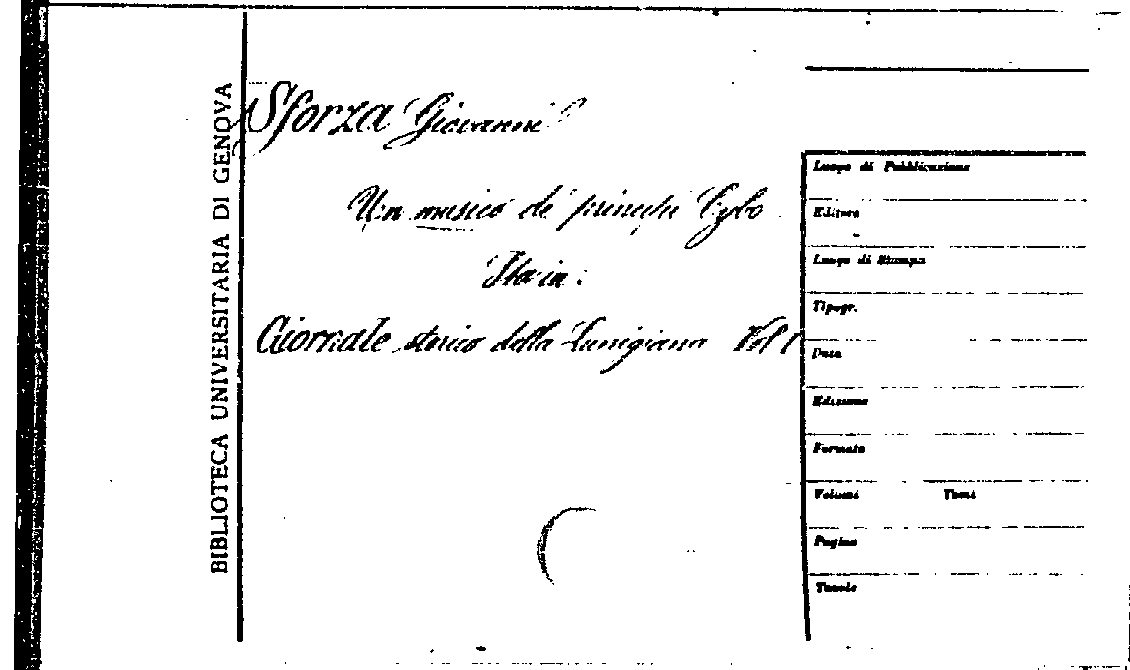 BIBLIOTECA UNIVERSITARIA DI GENOVA
Sforza Giovanni
Un musico de' principi Cybo
Sta in:
Giornale storico della Lunigiana Vol I
Luogo di Pubblicazione
Editore
Luogo di Stampa
Tipogr.
Data
Edizione
Formato
Volumi Tomi
Pagine
Tavole